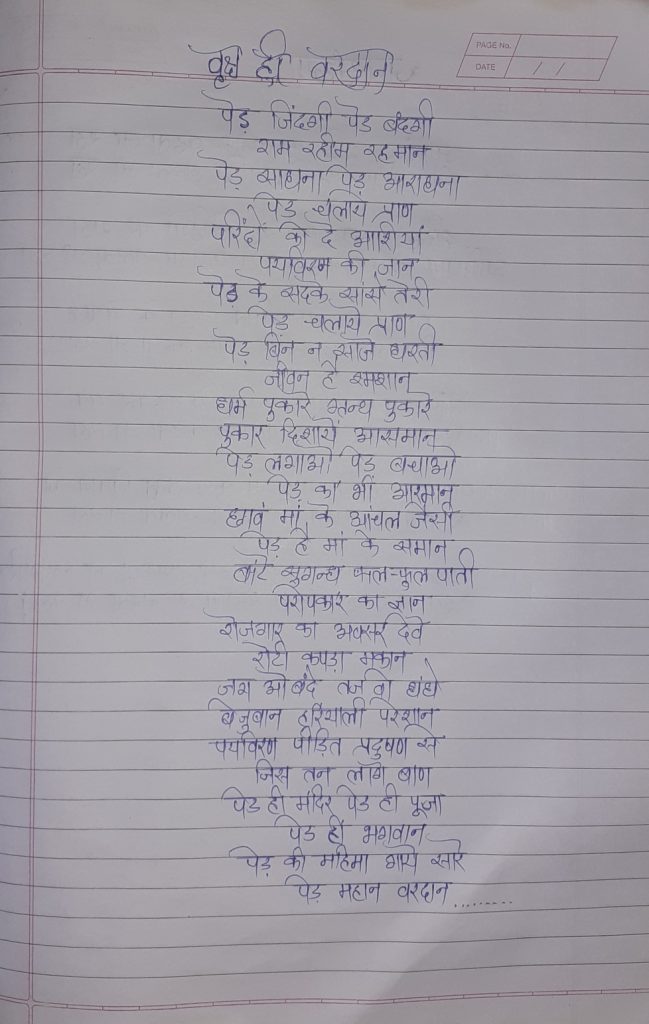 PAGE No.
DATE / /
वृक्ष ही वरदान
पेड़ जिंदगी पेड़ बंदगी
राम रहीम रहमान
पेड़ साधना पेड़ आराधना
पेड़ चलाये प्राण
परिंदों को दे आशियां
पर्यावरण की जान
पेड़ के सदके सांसे तेरी
पेड़ चलाये प्राण
पेड़ बिन न साजे धरती
जीवन है श्मशान
धर्म पुकारे ग्रन्थ पुकारे
पुकारे दिशायें आसमान
पेड़ लगाओ पेड़ बचाओ
पेड़ का भी अरमान
छावं मां के आंचल जैसी
पेड़ है मां के समान
बांटे सुगन्ध फल-फुल पाती
परोपकार का ज्ञान
रोजगार का अवसर देवे
रोटी कपड़ा मकान
जरा ओ बंदे तज वो धंधे
बेजुबान हरियाली परेशान
पर्यावरण पीड़ित प्रदुषण से
जिस तन लागे बाण
पेड़ ही मंदिर पेड़ ही पूजा
पेड़ ही भगवान
पेड़ की महिमा गाये सारे
पेड़ महान वरदान .........